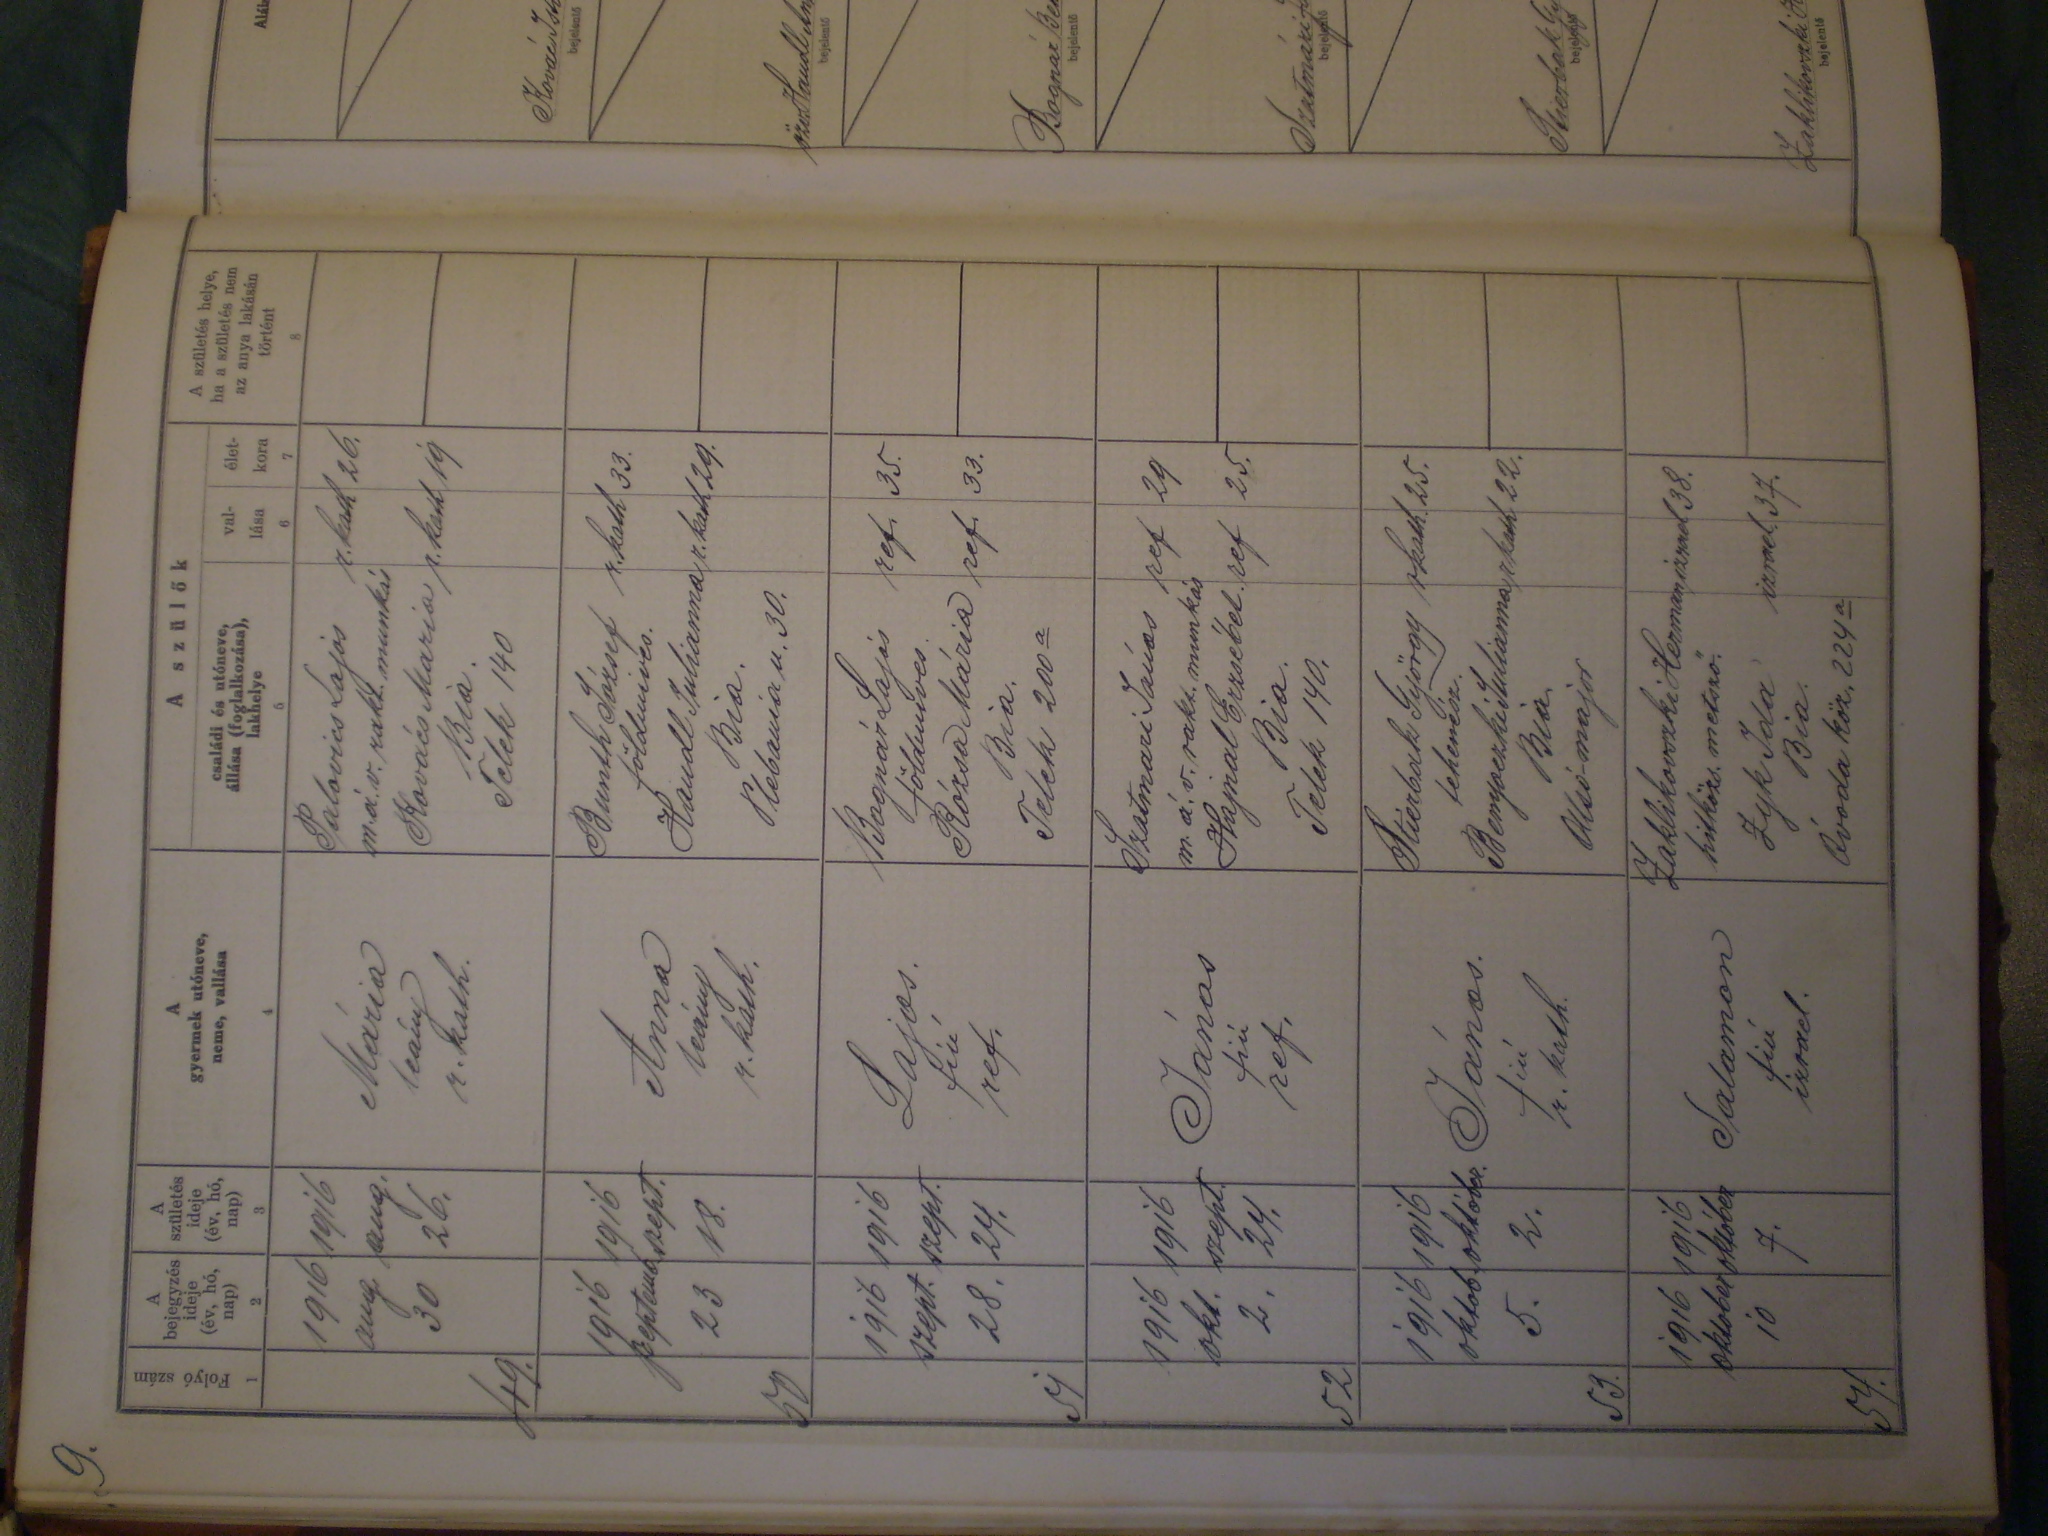 9.
Folyó szám
1
A
bejegyzés
ideje
(év, hó,
nap)
2
A
születés
ideje
(év, hó,
nap)
3
A
gyermek utóneve,
neme, vallása
4
A szülők
családi és utóneve,
állása (foglalkozása),
lakhelye
5
val-
lása
6
élet-
kora
7
A születés helye,
ha a születés nem
az anya lakásán
történt
8
49.
1916
aug
30
1916
aug.
26.
Mária
leány
r. kath.
Palovics Lajos r. kath 26.
m. á. v. rakt. munkás
Kovács Mária r. kath 19
Bia.
Telek 140
50
1916
septemb.
23
1916
szept.
18.
Anna
leány
r. kath.
Bunth József r. kath 33.
földmives.
Handl Julianna r. kath 29.
Bia.
Plebania u. 30.
51
1916
szept.
28.
1916
szept.
24.
Lajos.
fiú
ref.
Bognár Lajos ref. 35.
földmíves.
Rózsa Mária ref. 33.
Bia.
Telek 200 a
52
1916
okt.
2.
1916
szept.
24.
János
fiú
ref.
Szatmari János ref 29
m. á. v. rakt. munkás
Hajnal Erzsébet. ref 25.
Bia.
Telek 140.
53.
1916
oktob.
5.
1916
október.
2.
János.
fiú
r. kath.
Stierbak György r kath. 25.
tehenész.
Benyoczki Julianna r kath 22.
Bia.
Alsó-major
54.
1916
október
10
1916
október
7.
Salamon
fiú
izrael.
Zaklikovszki Herman izrael 38.
hitközs. metsző.
Zyk Ida izrael. 37.
Bia.
Óvoda köz. 224 a
bejelentő
Handl
bejelentő
Bognár
bejelentő
Szatmári
bejelentő
Stierbak
bejelentő
Zaklikovszki
bejelentő